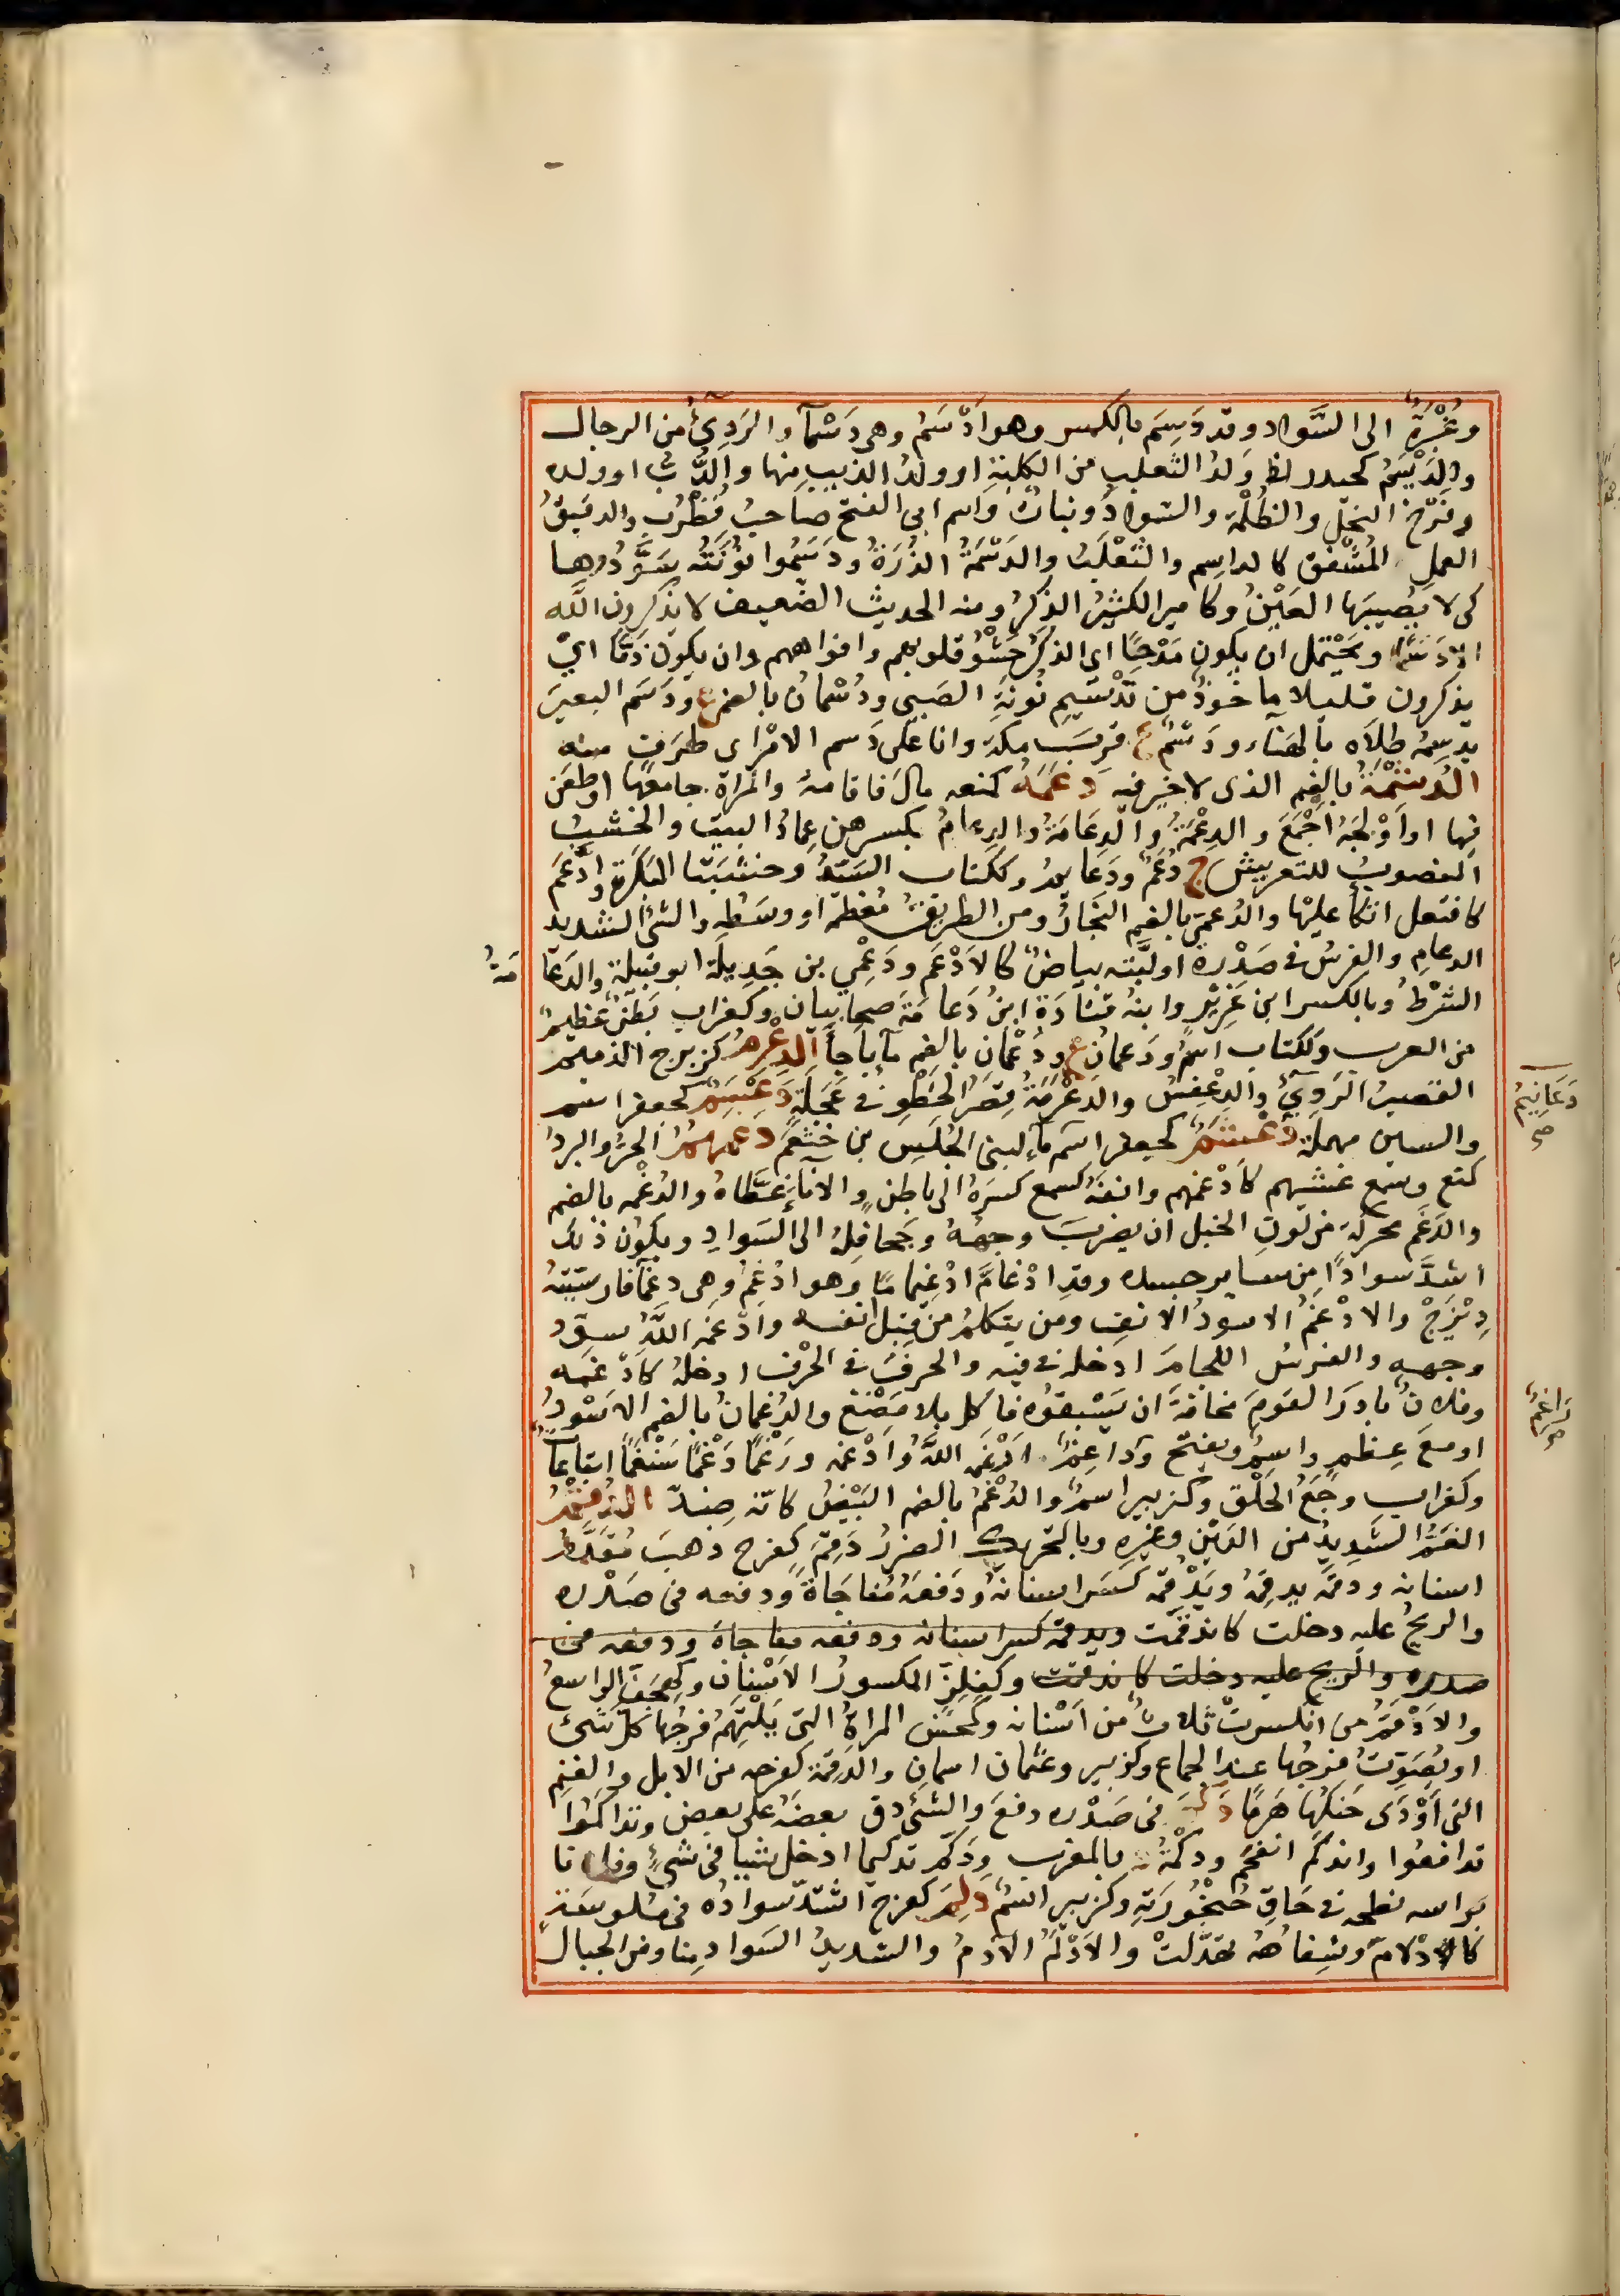 وغُبْرَةٌ الى السَّوادِ وقد دَسِمَ بالكسر وهو اَدْسَمُ وهى دَسْمآ والرَدِئُ من الرجال
والدَيْسَمُ كحيدر وَلَدُ الثعلب من الكلبةِ او ولدُ الذيب منها والدُّب او ولده
وفَرْخ النحل والظُلْمة والسَواد ونباتٌ واسم ابى الفتح صاحب قُطْرُب والرفيقُ
العمل المُشْفق كالداسِم والثعْلَب والدَسْمَةُ الذُرَةُ ودَسِّمُوا نُونَتَه سَوِّدُوها
كى لا تصيبَها العَيْنُ وكامير الكثيرُ الذكر ومنه الحديث الضعيف لا يذكرون الله
الا دَسَمًا ويَحْتمل ان يكون مَدْحًا اى الذكرُ حَشْوُ قلوبهم وافواههم وان يكون ذمًّا اىْ
يذكرون قليلا ماخوذٌ من تَدْسِيمِ نُونَةِ الصَبى ودُسْمانُ بالضم ع ودَسَم البعيرَ
يَدْسِمُه طلاه بالهناء ودَسَمٌ ع قربَ مكة وانا على دَسم الامْرِ اى طَرَفٍ منه
الدسْتُمَةُ بالضم الذى لا خير فيه دعَمَهُ كمنعه مال فاقامهُ والمرأة جامعها او طعَن
فيها او اَوْلَجَهُ اَجْمَعَ والدِعْمَةُ والدِعَامَةُ والدِعامُ بكسرهن عِمادُ البيت والخشبُ
المنصوبُ للتعريش ج دُعَمٌ ودَعَايمُ وككتاب السَيّدُ وخشبَتا البَكَرةِ وادَّعَمَ
كافتعل اتّكأ عليْها والدُعمىّ بالضم النَجّارُ ومن الطريق مُعْظمه او وسَطه والشئ الشديد
الدعامِ والفرسُ فى صَدْره او لبّته بياضٌ كالاَدْعَم ودُعْمِى بن جَدِيلَة ابو قبيلة والدِعَامَةُ
الشرْطُ وبالكسر ابن غزِيّةٍ وابنهُ قتادَةَ ابنُ دَعامَةَ صحابيّان وكغراب بَطْنٌ عظيمٌ
من العرب وككتاب اسمٌ ودَعمان ع ودُعْمان بالضم مآ باجأ الدِعْرِمُ كزبرج الذميم
القصيرُ الرَدِئُ والدِعْفِسُ والدِعْرَمَةُ قِصَرُ الخَطْوِ فى عَجَلَةٍ دَعْسَمٌ كجعفر اسم
والسين مهملة دَعْشَمٌ كجعفر اسم مآءٍ لبنى الحُلَيس بن خَثْعَمَ دغمهمُ الحرُّ والبردُ
كمنع وسمع غشيهم كاَدْغمهم وانفَهُ كسمع كسَرَهُ الى باطنٍ والاناءَ غطّاهُ والدُغْمه بالضم
والدَغَم محركة من لونِ الخيل ان يضربَ وجههُ وجَحافِلهُ الى السَواد ويكون ذلك
اشدَّ سوادًا من ساير جسده وقدِ ادْغامَّ ادْغِيمامًا وهو ادْغَمُ وهى دغمآ فارسيّته
دِيْزَجْ والادْغَمُ الاسودُ الانف ومن يتكلمُ من قِبَل انفه وادْغمَه اللّهُ سوّد
وجهه والفرسَ اللجامَ ادخله فى فيه والحرفَ فى الحرْف ادخلهُ كادّغمه
وفلانٌ بادرَ القومَ مخافةَ ان يَسْبقوُه فاكل بلا مَضْغ والدُغمانُ بالضم الاَسْودُ
او معَ عِظمٍ واسمٌ ويفتح وداغِمٌ ارْغمه اللّه وادْغمه ورَغْمًا دَغْمًا سَنْغمًا اتباعاً
وكغراب وجَعُ الحَلْق وكزبير اسمٌ والدُغْمُ بالضم البِيْضُ كانّه ضِدّ الدَقْمُ
الغَمُّ الشَدِيدُ من الدَيْن وغيْرِه وبالتحريك الضَزَزُ دَقِمَ كفرح ذهبَ مُقَدَّمُ
اسنانه ودقمَه يدقِمُهُ ويَدْقُمُه كسَر اسنانهُ ودَفعَهُ مُفاجَاةً ودفعه فى صَدْره
والريحُ عليه دخلت كاندَقمَت ويدقمه كسر اسنانه ودفعه مفاجاة ودفعه فى
صدره والريح عليه دخلت كاندقمت وكفِلِزّ المكسورُ الاَسْنان وكهِجَفّ الواسعُ
والاَدْقَمُ من انكسرتْ ثلاثٌ من اَسْنانه وكمحسن المراةُ التى يَلْتَهِمُ فرجُها كلَّ شَئ
او يُصَوِّتُ فرجُها عند الجماع وكزبير وعثمان اسمانِ والدَقِمَة كفرحه من الابل والغنم
التى اَوْدَى حَنكُها هَرَمًا دَكمَهُ فى صَدْره دفعَ والشئَ دق بعضَهُ على بعض وتدَاكمُوا
تدافعُوا واندكَمَ انقحَمَ ودكْمَةُ د بالمغرب ودَكّمَ تدكيما ادخل شيا فى شئٍ وفلانا
براسه نطحه فى حَاقِّ حُنْجُورَتِه وكزبير اسمٌ دَلِمَ كفرح اشتدّ سوادُه فى مُلوسَةٍ
كادْلامّ وشِفاهُه تهدّلتْ والاَدْلَمُ الآدَمُ والشديدُ السَواد منا ومن الجبال
دَعَانِيمُ
صح
دَاغِمٌ
صح